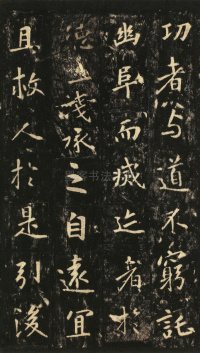 功者与道不窮託
幽阜而滅迹者於
德淺承之自遠宜
且救人於是引後